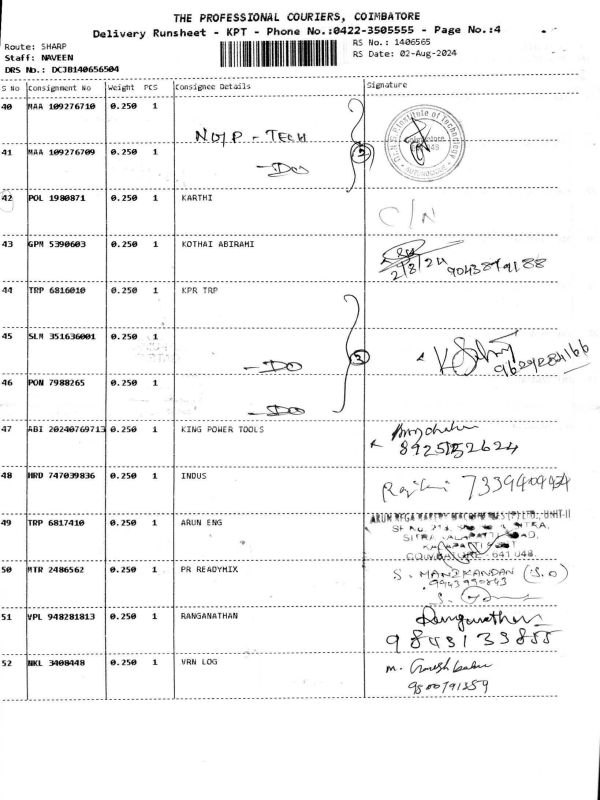 THE PROFESSIONAL COURIERS, COIMBATORE
Delivery Runsheet - KPT - Phone No.:0422-3505555 - Page No.:4
Route: SHARP
Staff: NAVEEN
DRS No.: DCJB140656504
RS No.: 1406565
RS Date: 02-Aug-2024
S No Consignment No Weight PCS Consignee Details Signature
40 MAA 109276710 0.250 1
41 MAA 109276709 0.250 1
- Do
2
42 POL 1980871 0.250 1 KARTHI C/N
43 GPM 5390603 0.250 1 KOTHAI ABIRAMI
2/8/24
44 TRP 6816010 0.250 1 KPR TRP
45 SLM 351636001 0.250 1
- Do
3
46 PON 7988265 0.250 1
- Do
47 ABI 20240769713 0.250 1 KING POWER TOOLS
48 HRD 747039836 0.250 1 INDUS
49 TRP 6817410 0.250 1 ARUN ENG
COIMBATORE - 641 048
50 MTR 2486562 0.250 1 PR READYMIX S. MANIKANDAN (S.O)
51 VPL 948281813 0.250 1 RANGANATHAN Ranganathan
52 NKL 3408448 0.250 1 VRN LOG